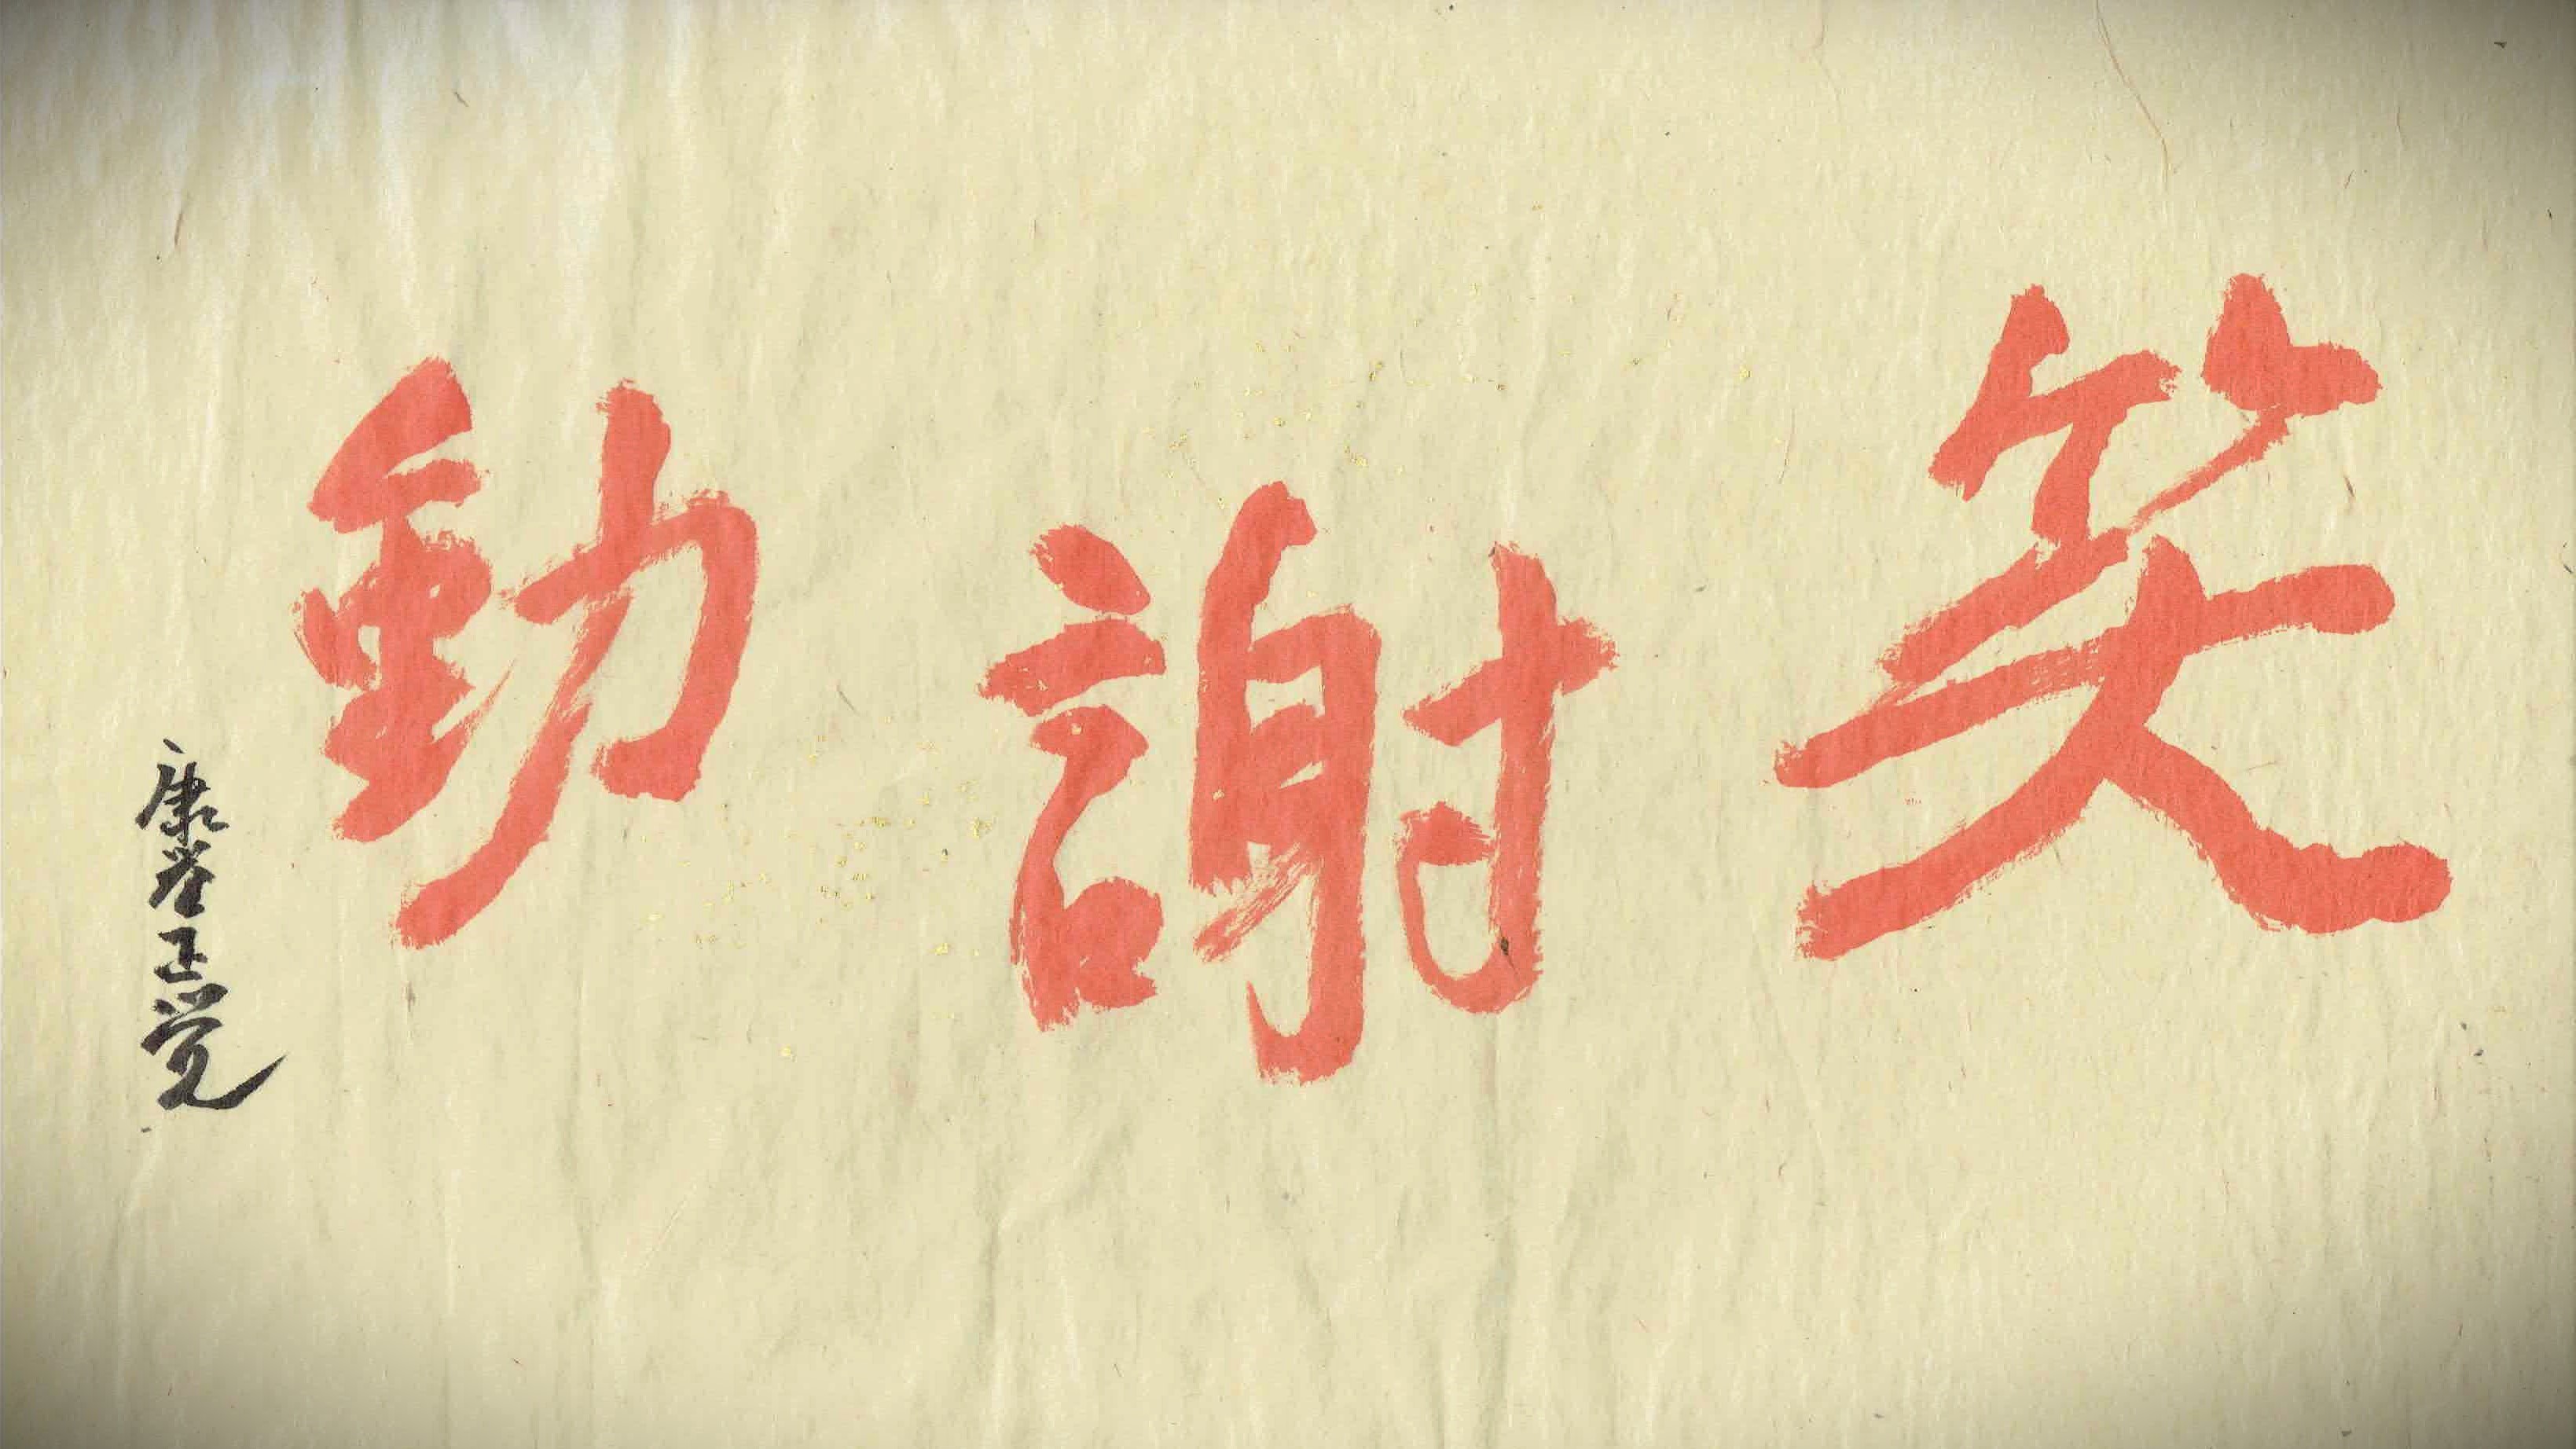 笑謝動
康岩正覚